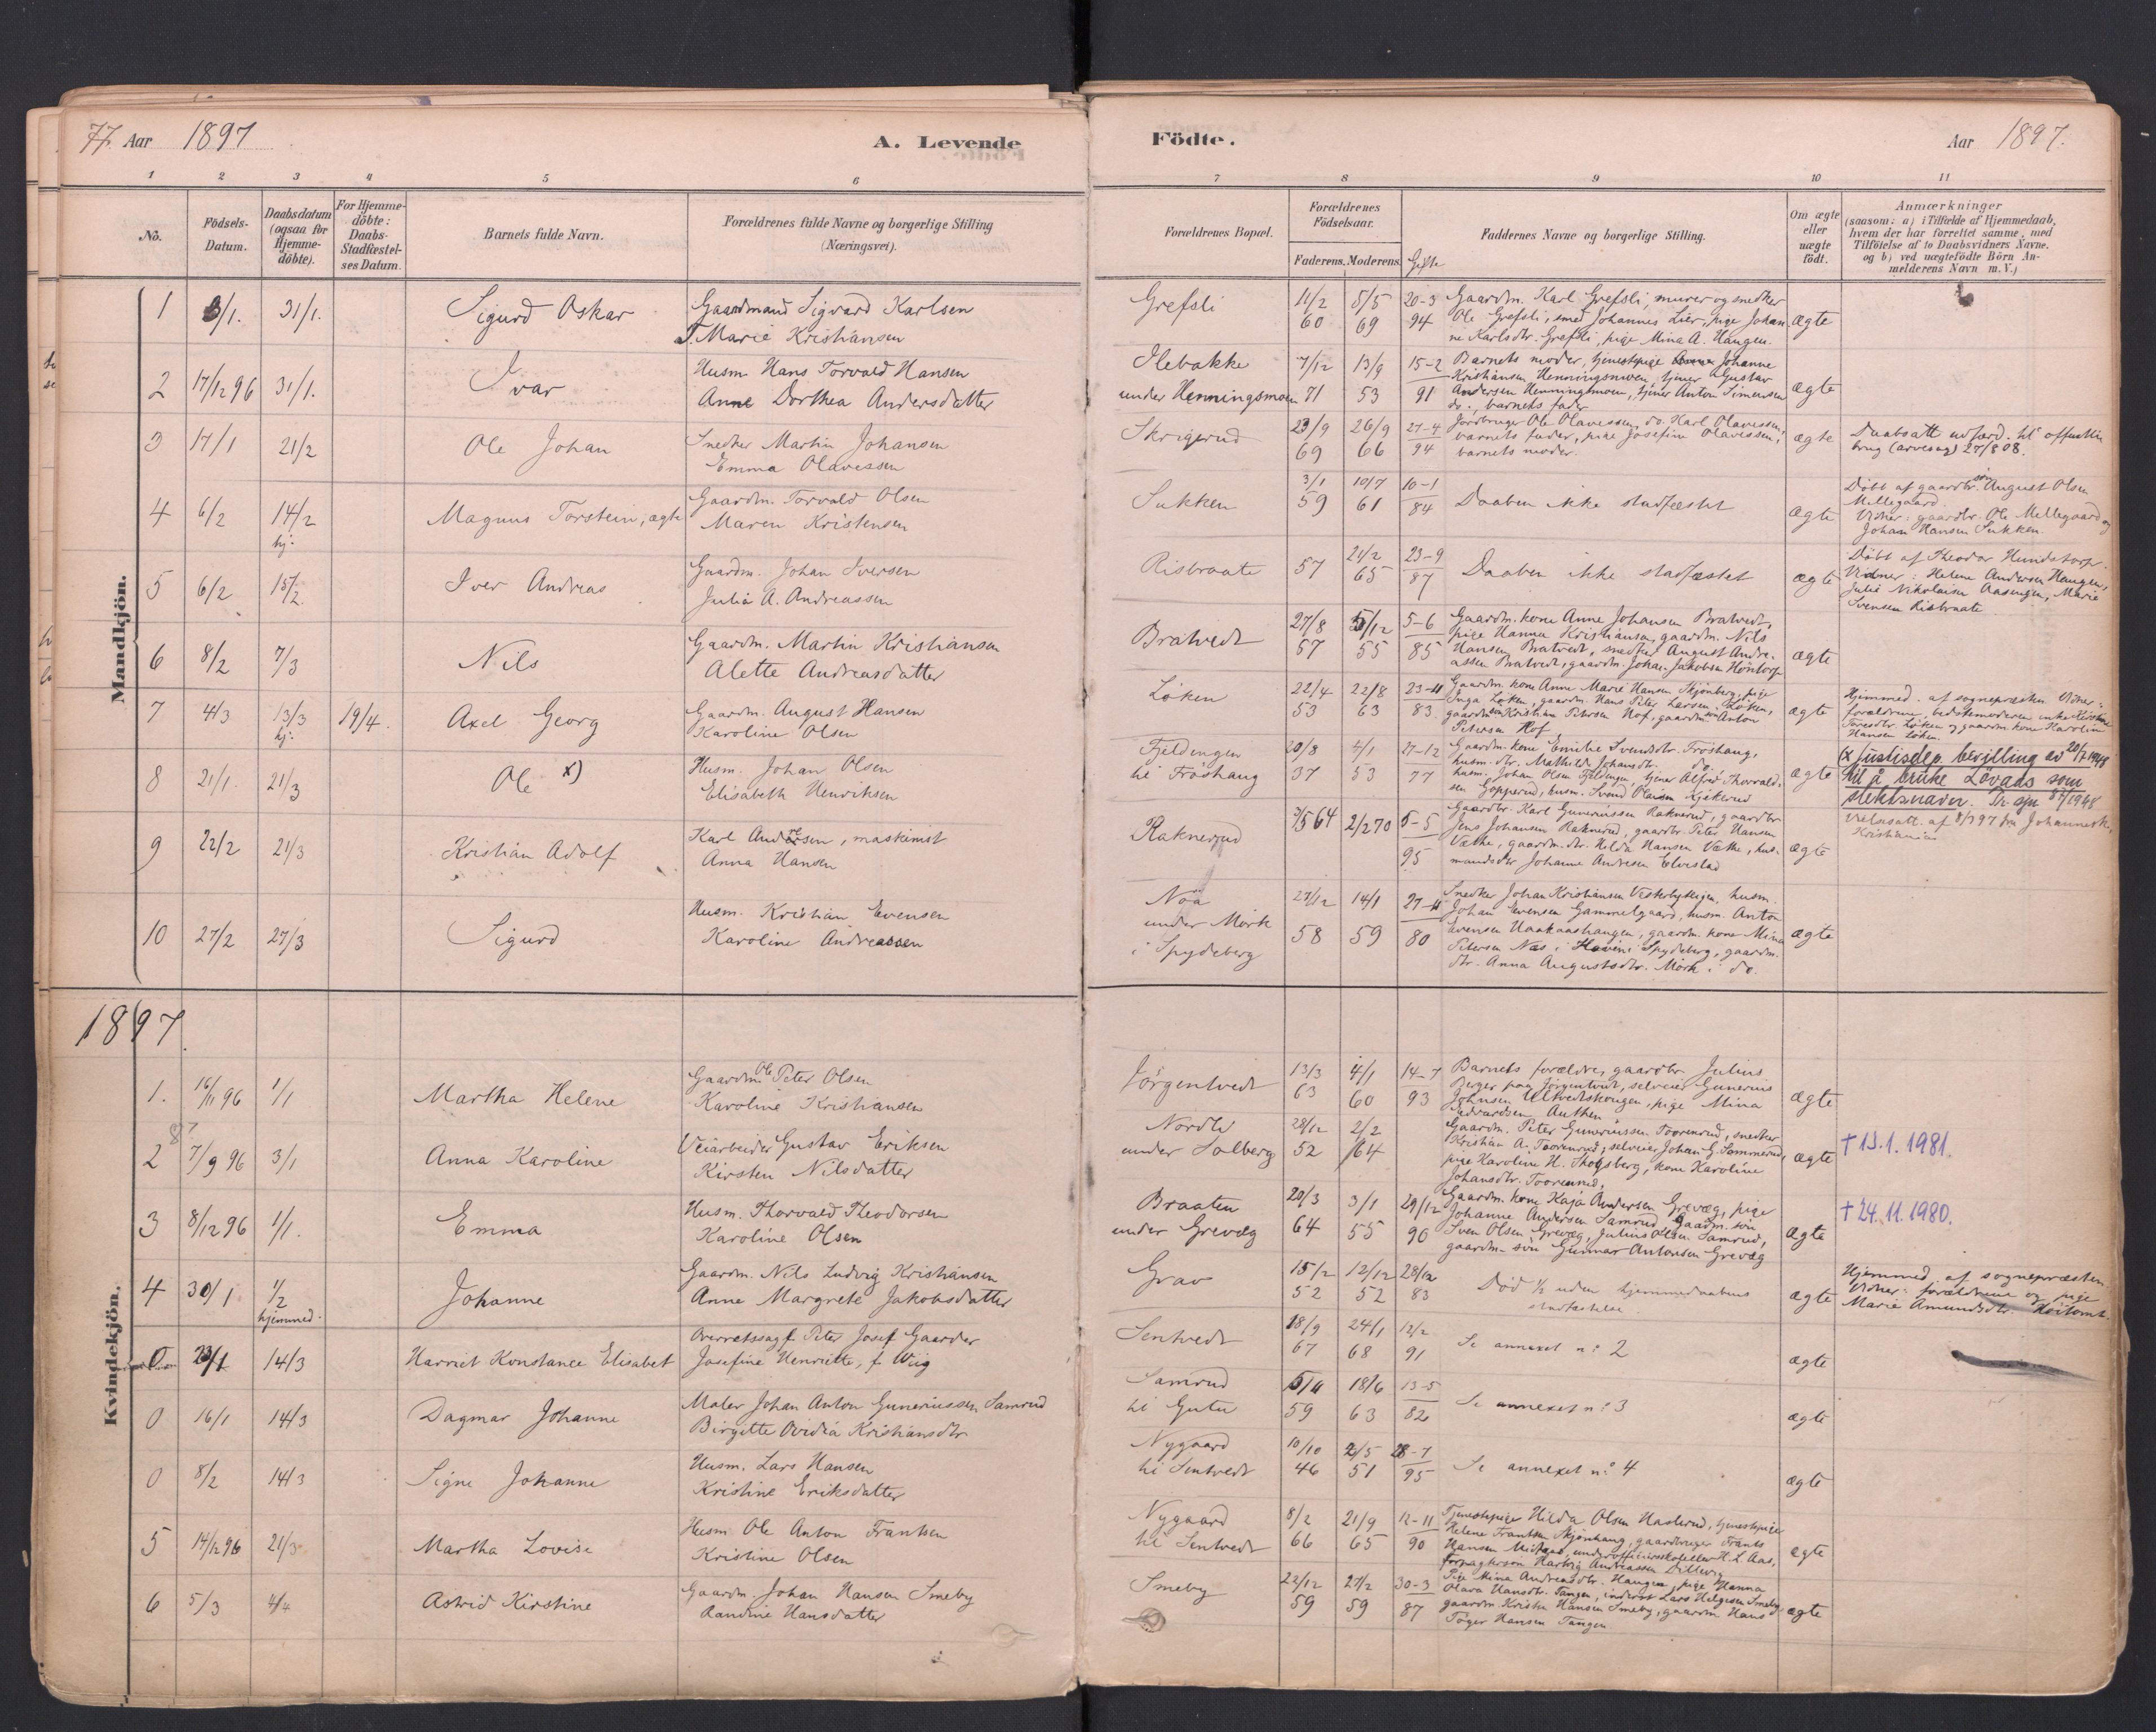 77. Aar 1897
A. Levende
Födte.
Aar 1897.
1 2 3 4 5 6
7 8 9 10 11
No.
Födsels-
Datum.
Daabsdatum
(ogsaa for
Hjemme-
döbte).
For Hjemme-
döbte:
Daabs-
Stadfæstel-
ses Datum.
Barnets fulde Navn.
Forældrenes fulde Navne og borgerlige Stilling
(Næringsvei).
Forældrenes Bopæl.
Forældrenes
Födselsaar.
Faderens. Moderens. Gifte
Faddernes Navne og borgerlige Stilling.
Om ægte
eller
uægte
födt.
Anmærkninger
(saasom: a) i Tilfælde af Hjemmedaab,
hvem der har forrettet samme, med
Tilföielse af to Daabsvidners Navne.
og b) ved uægtefödte Börn An-
melderens Navn m. V.)
Mandkjön.
1 3/1. 31/1. Sigurd Oskar
Gaardmand Sigvard Karlsen
T. Marie Kristiansen
Grefsli
11/2 5/5 20-3
60 69 94
Gaardm. Karl Grefsli, murer og snedker
Ole Grefsli, smed Johannes Lier, pige Johan
ne Karlsdtr. Grefsli, pige Mina A. Haugen.
ægte
2 17/12 96 31/1. Ivar
Husm. Hans Torvald Hansen
Anne Dorthea Andersdatter
Ilebakke
under Henningsmoen
7/12 13/9 15-2
71 53 91
Barnets moder, tjenestepige Johanne
Kristiansen Henningsmoen, tjener Gustav
Andersen Henningsmoen, tjener Anton Simensen
do., barnets fader
ægte
3 17/1 21/2 Ole Johan
Snedker Martin Johansen
Emma Olavessen
Skrigerud
23/9 26/9 27-4
69 66 94
Jordbruger Ole Olavessen, do. Karl Olavessen,
barnets fader, pige Josefine Olavessen,
barnets moder.
ægte
Daabsatt udfærd. til offentlig
brug (arvesag) 27/8 08.
4 6/2 14/2 hj. Magnus Torstein, ægte
Gaardm. Torvald Olsen
Maren Kristensen
Sukken
3/1 10/7 10-1
59 61 84
Daaben ikke stadfæstet
ægte
Döbt af gaardbr. sön August Olsen
Millegaard.
Vidner: gaardbr. Ole Millegaard og
Johan Hansen Sukken.
5 6/2 15/2 Iver Andreas
Gaardm. Johan Iversen
Julia A. Andreassen
Risbraate
57 21/2 65 23-9 87
Daaben ikke stadfæstet
ægte
Döbt af Theodor Hundstorp.
Vidner: Helene Andersen Haugen,
Julie Nikolaisen Aasengen, Marie
Svensen Risbraate
6 8/2 7/3 Nils
Gaardm. Martin Kristiansen
Alette Andreasdatter
Bratvedt
27/8 5/12 5-6
57 55 85
Gaardm. kone Anne Johansen Bratvedt,
pige Hanna Kristiansen, gaardm. Nils
Hansen Bratvedt, snedker August Andre-
assen Bratvedt, gaardm. Johan Jakobsen Höntorp
ægte
7 4/3 13/3 hj. 19/4. Axel Georg
Gaardm. August Hansen
Karoline Olsen
Löken
22/4 22/8 23-11
53 63 83.
Gaardm. kone Anne Marie Hansen Skjönberg, pige
Inga Löken, gaardm. Hans Peter Larsen Löken,
gaardm. sön Kristian Petersen Hof, gaardm. sön Anton
Petersen Hof
ægte
Hjemmed. af sognepræsten. Vidner:
forældrene, bedstemoderen enke Kirstine
Taresdtr. Löken og gaardm. kone Karoline
Hansen Löken.
8 21/1. 21/3 Ole x)
Husm. Johan Olsen
Elisabeth Henriksen
Fjeldengen
til Fröshaug
20/8 4/1 27-12
37 53 77
Gaardm. kone Emilie Svendsdtr. Fröshaug,
husm. dtr. Mathilde Johansdtr. do.
husm. Johan Olsen Fjeldengen, tjener Alfred Thorvald-
sen Gopperud, husm. Svend Olaisen Kjikerud
ægte
(x justisdep. bevilling av 20/7 1948
til å bruke Lövaas som
slektsnavn. Dr. sjn. 8/1948
9 22/2 21/3 Kristian Adolf
Karl Andersen, maskinist
Anna Hansen
Raknerud
3/5 64 2/2 70 5-5
95
Gaardbr. Karl Gunerinssen Raknerud, gaardbr.
Jens Johansen Raknerud, gaardbr. Peter Hansen
Væthe, gaardm. dtr. Hilda Hansen Væthe, hus-
mandsdtr Johanne Andresen Elvestad
ægte
Vielsesatt. af 8/1 97 fra Johannesk.,
Kristiania
10 27/2 27/3 Sigurd
Husm. Kristian Evensen
Karoline Andreassen
Nöa
under Mörk
i Spydeberg
27/12 14/1 27-11
58 59 80
Snedker Johan Kristiansen Vesterbyskogen, husm.
Johan Evensen Gammelgaard, husm. Anton
Evensen Haakaashaugen, gaardm. kone Mina
Petersen Næs i Hovin i Spydeberg, gaardm.
dtr. Anna Augustsdtr. Mörk i do.
ægte
1897.
Kvindekjön.
1. 16/11 96 1/1 Martha Helene
Gaardm. Ole Peter Olsen
Karoline Kristiansen
Jörgentvedt
13/3 4/1 14-7
63 60 93
Barnets forældre, gaardbr. Julius
Berger paa Jörgentvedt, selveier Gunerius
Johnsen Ultvedtskougen, pige Mina
Edvardsen Authen
ægte
2 7/9 96 3/1 Anna Karoline
Veiarbeider Gustav Eriksen
Kirsten Nilsdatter
Nordli
under Solberg
28/12 2/2
52 64
Gaardm. Peter Gunerinssen Toorenrud, snedker
Kristian A. Toorenrud, selveier Johan G. Sommerud,
pige Karoline H. Skogsberg, kone Karoline
Johansdtr. Toorenrud.
ægte
† 13.1.1981.
3 8/12 96 1/1. Emma
Husm. Thorvald Theodorsen
Karoline Olsen
Braaten
under Grevæg
20/3 3/1 29/12
64 55 90
Gaardm. kone Kaja Andersen Grevæg, pige
Johanne Andersen Samrud, Gaardm. sön
Sven Olsen Grevæg, Julius Olsen Samrud,
gaardm. sön Gunnar Antonsen Grevæg
ægte
† 24.11.1980.
4 30/1 1/2 hjemmed. Johanne
Gaardm. Nils Ludvig Kristiansen
Anne Margrete Jakobsdatter
Grav
15/2 12/12 28/12
52 52 83
Död 1/2 uden hjemmedaabens
stadfæstelse
ægte
Hjemmed. af sognepræsten
Vidner: forældrene og pige
Marie Amundsdtr. Hoitomt.
0 23/1 14/3 Harriet Konstance Elisabet
Overretssagf. Peter Josef Gaarder
Josefine Henriette, f. Wiig
Sentvedt
18/9 24/1 12/2
67 68 91
Se annexet n: 2
ægte
0 16/1 14/3 Dagmar Johanne
Maler Johan Anton Gunerinssen Samrud
Birgitte Ovidia Kristiansdtr
Samrud
til Guten
5/11 18/6 13-5
59 63 82
Se annexet n: 3
ægte
0 8/2 14/3 Signe Johanne
Husm. Lars Hansen
Kristine Eriksdatter
Nygaard
til Sentvedt
10/10 2/5 28-7
46 51 95
Se annexet n: 4
ægte
5 14/12 96 21/3 Martha Lovise
Husm. Ole Anton Frantsen
Kristine Olsen
Nygaard
til Sentvedt
8/2 21/9 12-11
66 65 90
Tjenestepige Hilda Olsen Haslerud, tjenestepige
Helene Frantsen Skjönhaug, gaardbruger Frants
Hansen underofficerskoleelev H. L. Aas,
forpagterson Hartvig Andreassen Dillevig
ægte
6 5/3 4/4 Astrid Kirstine
Gaardm. Johan Hansen Smeby
Randine Hansdatter
Smeby
22/12 27/2 30-3
59 59 87
Pige Mina Andreasdtr. Haugen, pige Hanna
Olava Hansdtr. Tangen, inderst Lars Helgesen Smeby,
gaardm. Kristen Hansen Smeby, gaardm. Hans
Töger Hansen Tangen
ægte